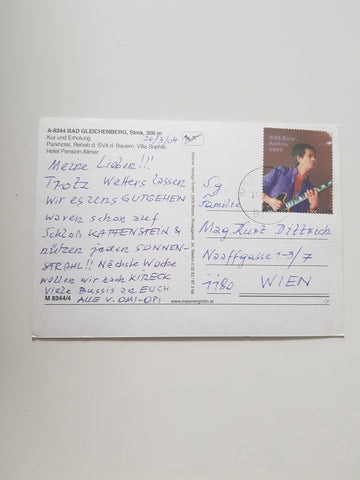 A-8344 BAD GLEICHENBERG, Stmk, 300 m
Kur und Erholung
Parkhotel, Rehab d. SVA d. Bauern, Villa Sophie,
Hotel Pension Allmer
Meine Lieben!!!
Trotz Wetters lassen
wir es uns GUTGEHEN
waren schon auf
Schloß KAPFENSTEIN &
nützen jeden SONNEN-
STRAHL!! Nächste Woche
wollen wir nach
Viele Bussis an EUCH
ALLE V. OMI-OPI
M 8344/4
www.meisnergmbh.at
0.55 Euro
Austria
2007
Sg.
Familie
Mag. Kurt Dittrich
Naaffgasse 1-3/7
1180 WIEN